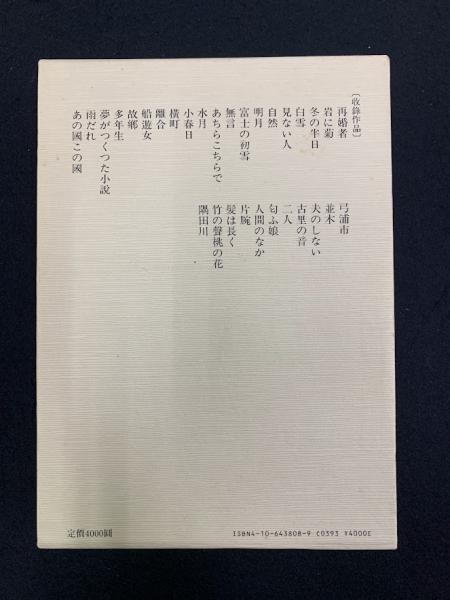 〔收錄作品〕
再婚者
岩に菊
冬の半日
白雪
見ない人
自然
明月
富士の初雪
無言
あちらこちらで
水月
小春日
橫町
離合
船遊女
故鄕
多年生
夢がつくつた小說
雨だれ
あの國この國
弓浦市
並木
夫のしない
古里の音
二人
匂ふ娘
人間のなか
片腕
髮は長く
竹の聲桃の花
隅田川
定價4000圓
ISBN4-10-643808-9 C0393 ¥4000E